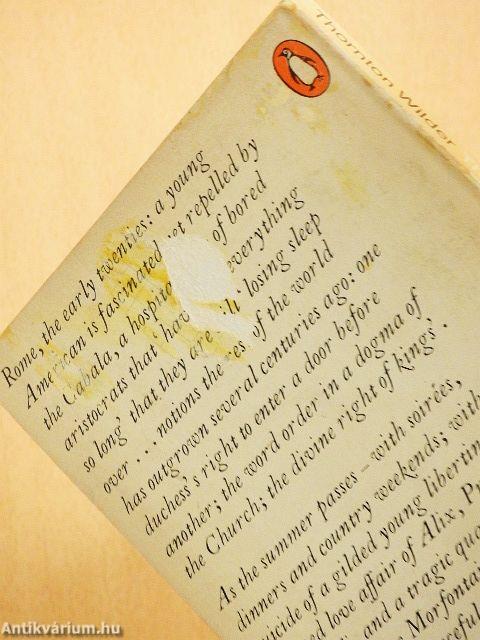 Thornton Wilder
Rome, the early twenties: a young
American is fascinated yet repelled by
the Cabala, a of bored
aristocrats that everything
so long' that they are losing sleep
over ... notions the of the world
has outgrown several centuries ago: one
duchess's right to enter a door before
another; the word order in a dogma of
the Church; the divine right of kings'.
As the summer passes – with soirées,
dinners and country weekends; with
of a gilded young
love affair of Alix,
and a tragic
Antikvárium.hu